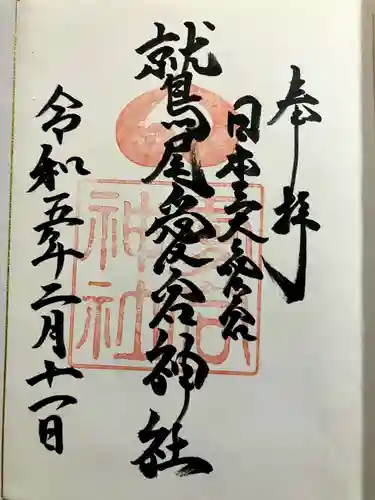 奉拝
日本三大愛宕
鷲尾愛宕神社
令和五年二月十一日
愛宕神社